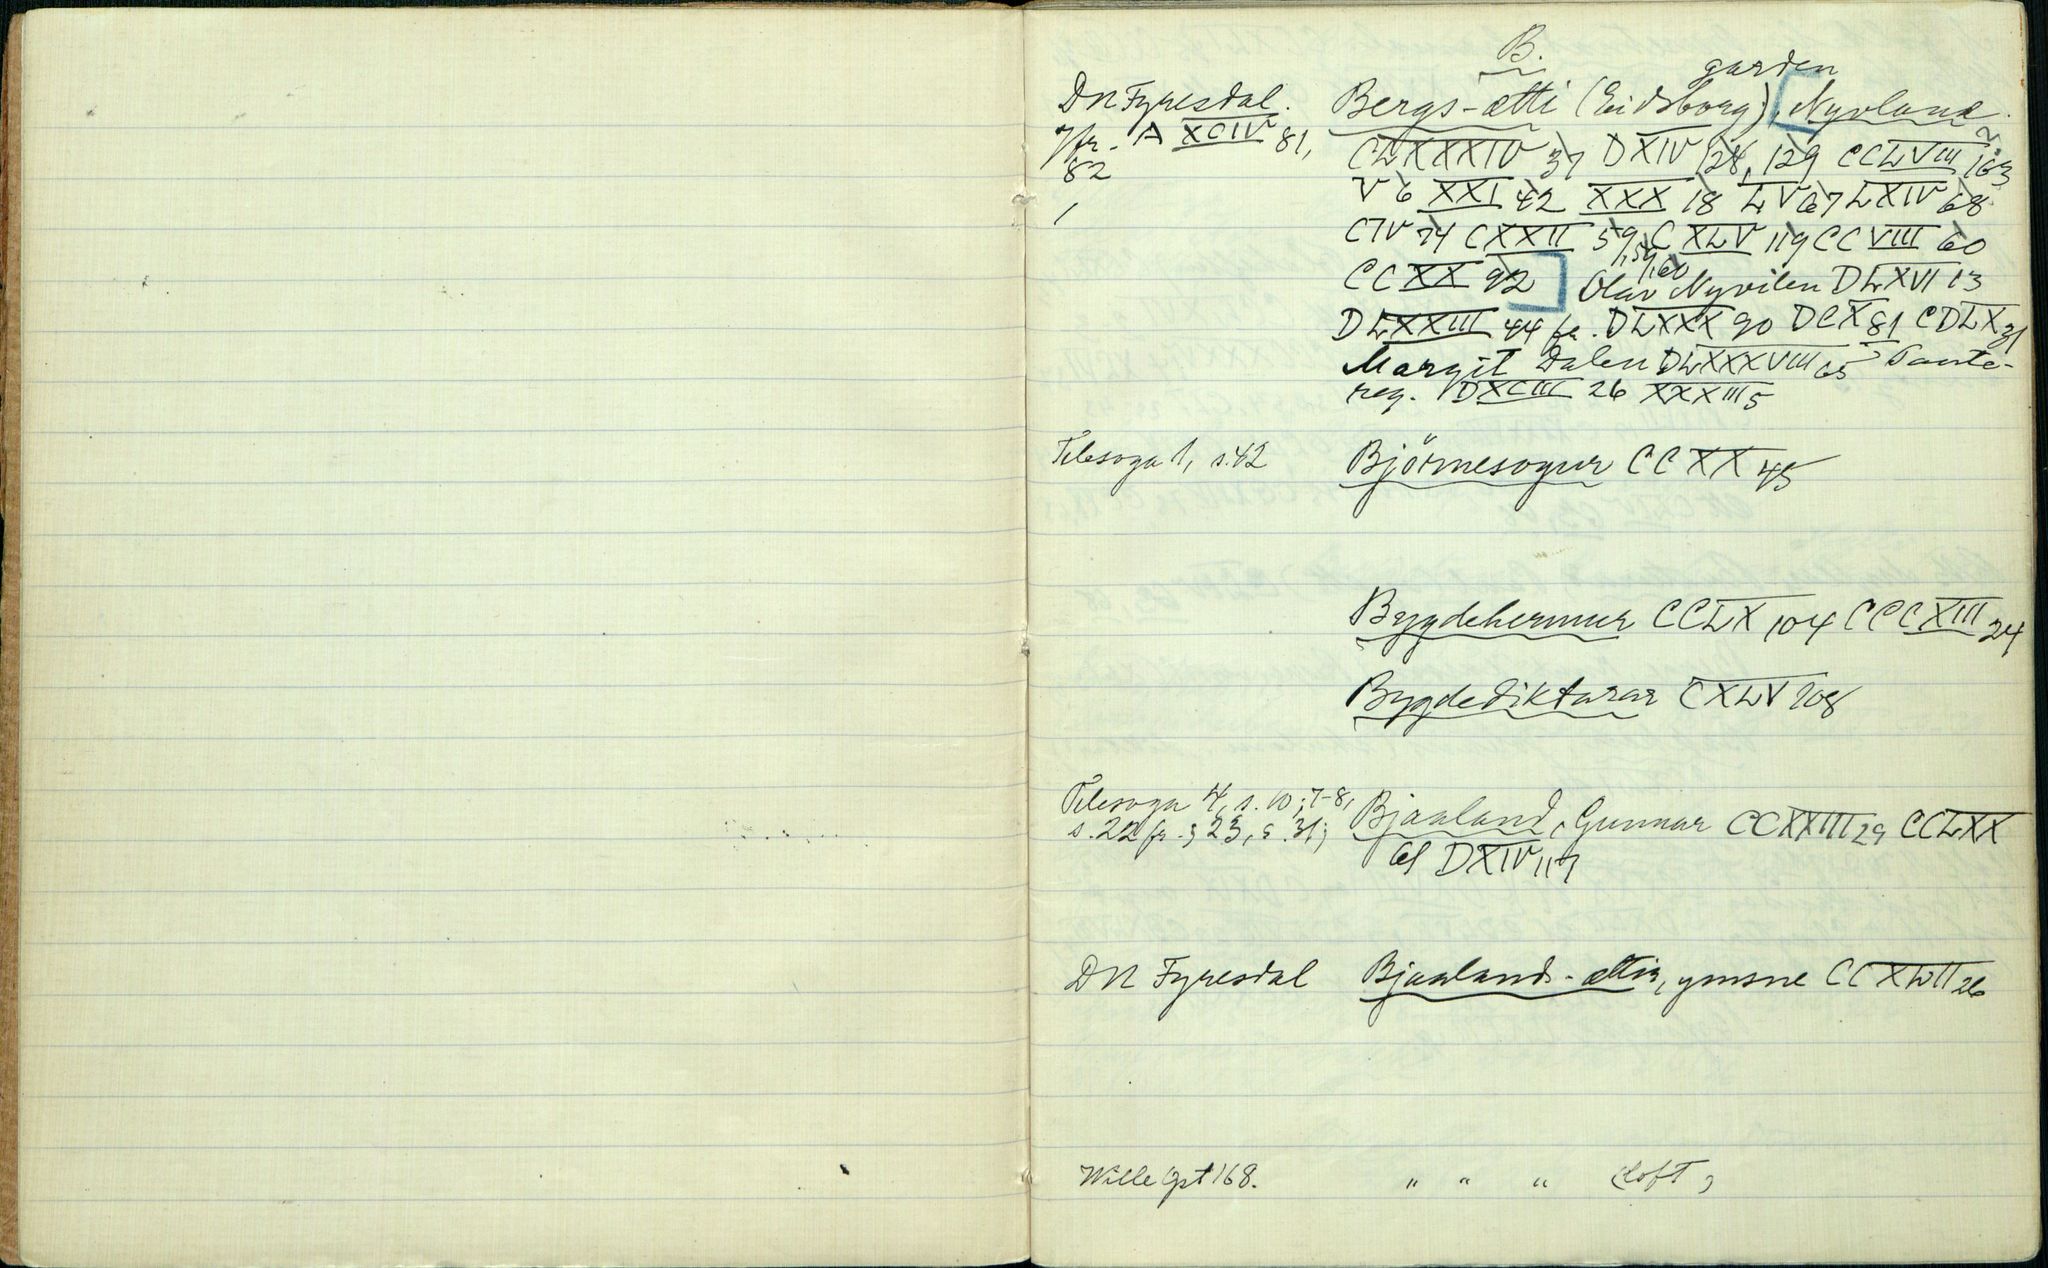 B.
garden
DN Fyresdal. Bergs-ætti (Eidsborg), Nyvland.
Jfr. A XCIV 81, CLXXXIV 37 DXIV 128, 129 CCLVIII 163
82 V 6 XXI 42 XXX 18 LV 67 LXIV 68
1 CIV 74 CXXII 59, CXLV 119 CCVIII 60
, 59, 60
CCXX 92 Olav Nyvilen DLXVI 13
DLXXIII 44 fr. DLXXX 90 DCX 81 CDLX 31
Margit Dalen DLXXXVIII 65 Tante-
reg. DXCIII 26 XXXIII 5
Telesoga 1, s. 42 Björnesogur CCXX 45
Bygdehermur CCLX 104 CCCXIII 24
Bygdediktarar CXLV 108
Telesoga 4, s. 10; 7-8, Bjaaland, Gunnar CCXXIII 29 CCLXX
s. 22 fr.; 23, s. 31; 61 DXIV 117
DN Fyresdal Bjaalands-ættir, ymsne CCXLII 26
Wille Opt 168. " " " (loft)